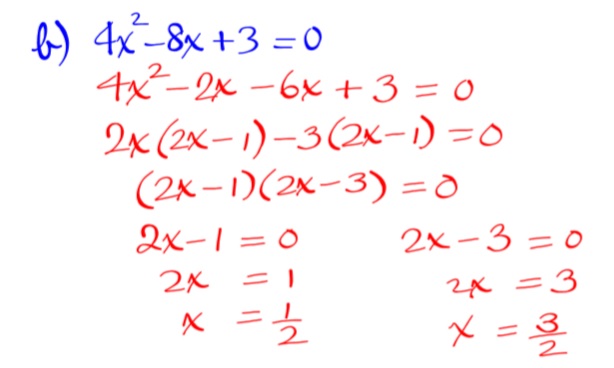 b) 4x²-8x+3=0
4x²-2x-6x+3=0
2x(2x-1)-3(2x-1)=0
(2x-1)(2x-3)=0
2x-1=0 2x-3=0
2x=1 2x=3
x=1/2 x=3/2